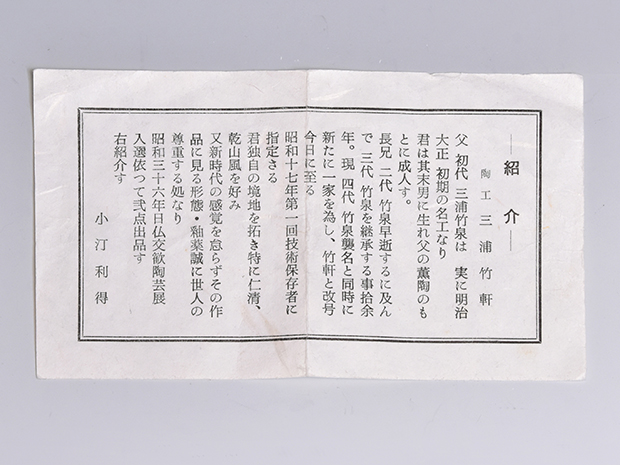 ―紹介―
陶工 三浦竹軒
父 初代 三浦竹泉は 実に明治
大正 初期の名工なり
君は其末男に生れ父の薫陶のも
とに成人す。
長兄 二代 竹泉早逝するに及ん
で 三代 竹泉を継承する事拾余
年。現 四代 竹泉襲名と同時に
新たに一家を為し、竹軒と改号
今日に至る
昭和十七年第一回技術保存者に
指定さる
君独自の境地を拓き特に仁清、
乾山風を好み
又新時代の感覚を怠らずその作
品に見る形態・釉薬誠に世人の
尊重する処なり
昭和三十六年日仏交歓陶芸展
入選依つて弐点出品す
右紹介す
小汀利得